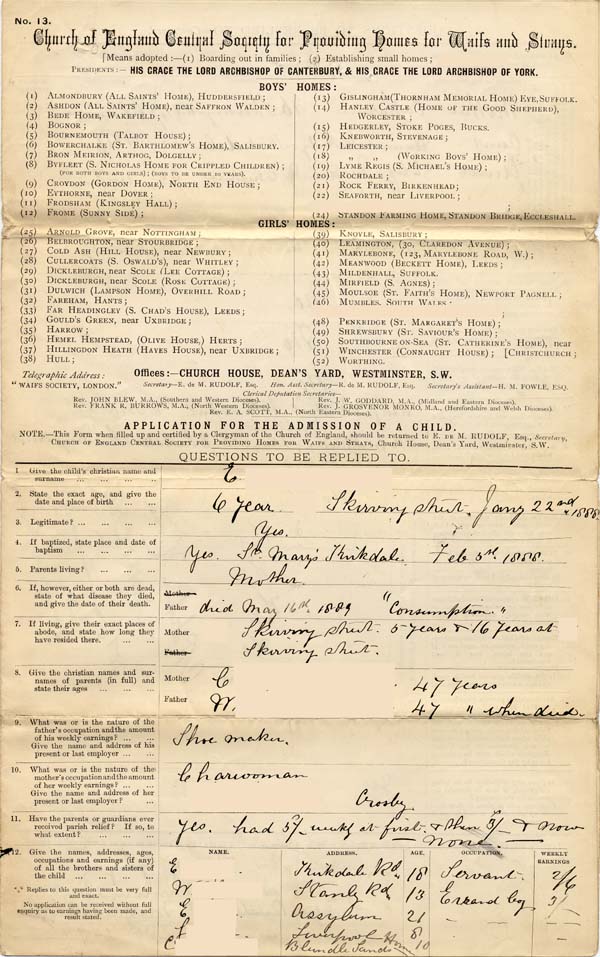 No. 13.
Church of England Central Society for Providing Homes for Waifs and Strays.
[Means adopted:—(1) Boarding out in families; (2) Establishing small homes;
PRESIDENTS:— HIS GRACE THE LORD ARCHBISHOP OF CANTERBURY, & HIS GRACE THE LORD ARCHBISHOP OF YORK.
BOYS' HOMES:
(1) ALMONDBURY (ALL SAINTS' HOME), HUDDERSFIELD;
(2) ASHDON (ALL SAINTS' HOME), near SAFFRON WALDEN;
(3) BEDE HOME, WAKEFIELD;
(4) BOGNOR;
(5) BOURNEMOUTH (TALBOT HOUSE);
(6) BOWERCHALKE (ST. BARTHLOMEW'S HOME), SALISBURY.
(7) BRON MEIRION, ARTHOG, DOLGELLY;
(8) BYFLEET (S. NICHOLAS HOME FOR CRIPPLED CHILDREN);
(FOR BOTH BOYS AND GIRLS); (BOYS TO BE UNDER 10 YEARS).
(9) CROYDON (GORDON HOME), NORTH END HOUSE;
(10) EYTHORNE, near DOVER;
(11) FRODSHAM (KINGSLEY HALL);
(12) FROME (SUNNY SIDE);
(13) GISLINGHAM(THORNHAM MEMORIAL HOME) EYE, SUFFOLK.
(14) HANLEY CASTLE (HOME OF THE GOOD SHEPHERD),
WORCESTER;
(15) HEDGERLEY, STOKE POGES, BUCKS.
(16) KNEBWORTH, STEVENAGE;
(17) LEICESTER;
(18) „ „ (WORKING BOYS' HOME);
(19) LYME REGIS (S. MICHAEL'S HOME);
(20) ROCHDALE;
(21) ROCK FERRY, BIRKENHEAD;
(22) SEAFORTH, near LIVERPOOL;
;
(24) STANDON FARMING HOME, STANDON BRIDGE, ECCLESHALL.
GIRLS' HOMES:
(25) ARNOLD GROVE, near NOTTINGHAM;
(26) BELBROUGHTON, near STOURBRIDGE;
(27) COLD ASH (HILL HOUSE), near NEWBURY;
(28) CULLERCOATS (S. OSWALD'S), near WHITLEY;
(29) DICKLEBURGH, near SCOLE (LEE COTTAGE);
(30) DICKLEBURGH, near SCOLE (ROSE COTTAGE);
(31) DULWICH (LAMPSON HOME), OVERHILL ROAD;
(32) FAREHAM, HANTS;
(33) FAR HEADINGLEY (S. CHAD'S HOUSE), LEEDS;
(34) GOULD'S GREEN, near UXBRIDGE;
(35) HARROW;
(36) HEMEL HEMPSTEAD, (OLIVE HOUSE,) HERTS;
(37) HILLINGDON HEATH (HAYES HOUSE), near UXBRIDGE;
(38) HULL;
(39) KNOYLE, SALISBURY;
(40) LEAMINGTON, (30, CLAREDON AVENUE);
(41) MARYLEBONE, (123, MARYLEBONE ROAD, W.);
(42) MEANWOOD (BECKETT HOME), LEEDS;
(43) MILDENHALL, SUFFOLK.
(44) MIRFIELD (S. AGNES);
(45) MOULSOE (ST. FAITH'S HOME), NEWPORT PAGNELL;
(46) MUMBLES, SOUTH WALES.
;
(48) PENKRIDGE (ST. MARGARET'S HOME);
(49) SHREWSBURY (ST. SAVIOUR'S HOME);
(50) SOUTHBOURNE-ON-SEA (ST. CATHERINE'S HOME), near
(51) WINCHESTER (CONNAUGHT HOUSE); [CHRISTCHURCH;
(52) WORTHING.
Telegraphic Address:
"WAIFS SOCIETY, LONDON."
Offices:—CHURCH HOUSE, DEAN'S YARD, WESTMINSTER, S.W.
Secretary—E. de M. RUDOLF, Esq. Hon. Asst. Secretary—R. de M. RUDOLF, Esq. Secretary's Assistant—H. M. FOWLE, ESQ.
Clerical Deputation Secretaries—
Rev. JOHN BLEW, M.A., (Southern and Western Dioceses). Rev. J. W. GODDARD, M.A., (Midland and Eastern Dioceses).
Rev. FRANK R. BURROWS, M.A., (North Western Dioceses). Rev. J. GROSVENOR MONRO, M.A., (Herefordshire and Welsh Dioceses).
Rev. E. A. SCOTT, M.A., (North Eastern Dioceses).
APPLICATION FOR THE ADMISSION OF A CHILD.
NOTE.—This Form when filled up and certified by a Clergyman of the Church of England, should be returned to E. DE M. RUDOLF, Esq., Secretary,
CHURCH OF ENGLAND CENTRAL SOCIETY FOR PROVIDING HOMES FOR WAIFS AND STRAYS, Church House, Dean's Yard, Westminster, S.W.
QUESTIONS TO BE REPLIED TO.
1 Give the child's christian name and
surname ... ... ... ...
E
2. State the exact age, and give the
date and place of birth ... ...
6 year. Skirving street. Jany 22nd 1888.
3. Legitimate? ... ... ... ...
Yes.
4. If baptized, state place and date of
baptism ... ... ... ...
Yes. St. Mary's Kirkdale. Feb 5th. 1888.
5. Parents living? ... ... ...
Mother.
6. If, however, either or both are dead,
state of what disease they died,
and give the date of their death.
Mother
Father died May 16th 1889 "Consumption."
7. If living, give their exact places of
abode, and state how long they
have resided there. ... ...
Mother Skirving street. 5 years & 16 years at
Father Skirving street.
8. Give the christian names and sur-
names of parents (in full) and
state their ages ... ... ...
Mother C 47 years
Father W. 47 " when died.
9. What was or is the nature of the
father's occupation and the amount
of his weekly earnings? ... ...
Give the name and address of his
present or last employer ... ...
Shoe maker.
10. What was or is the nature of the
mother's occupation and the amount
of her weekly earnings? ... ...
Give the name and address of her
present or last employer? ...
Charwoman
Crosby
11. Have the parents or guardians ever
received parish relief? If so, to
what extent? ... ... ...
Yes. had 5/- weekly at first. & then 3/- & now
None.
12. Give the names, addresses, ages,
occupations and earnings (if any)
of all the brothers and sisters of
the child ... ... ... ...
*** Replies to this question must be very full
and exact.
No application can be received without full
enquiry as to earnings having been made, and
result stated.
NAME. ADDRESS. AGE. OCCUPATION. WEEKLY
EARNINGS
E Kirkdale Rd. 18 Servant. 2/6
W Stanly Rd. 13 Errand boy 3/-
E Assylum 21 - -
Liverpool Home 8 -
C Blundle Sands 10